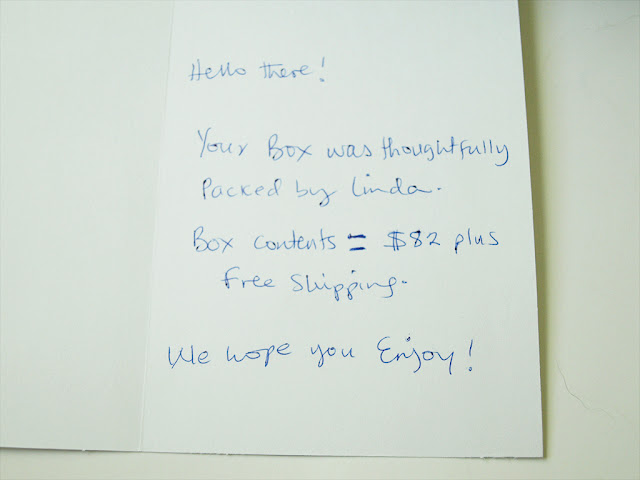 Hello there!
Your Box was thoughtfully
Packed by Linda.
Box contents = $82 plus
Free Shipping.
We hope you Enjoy!